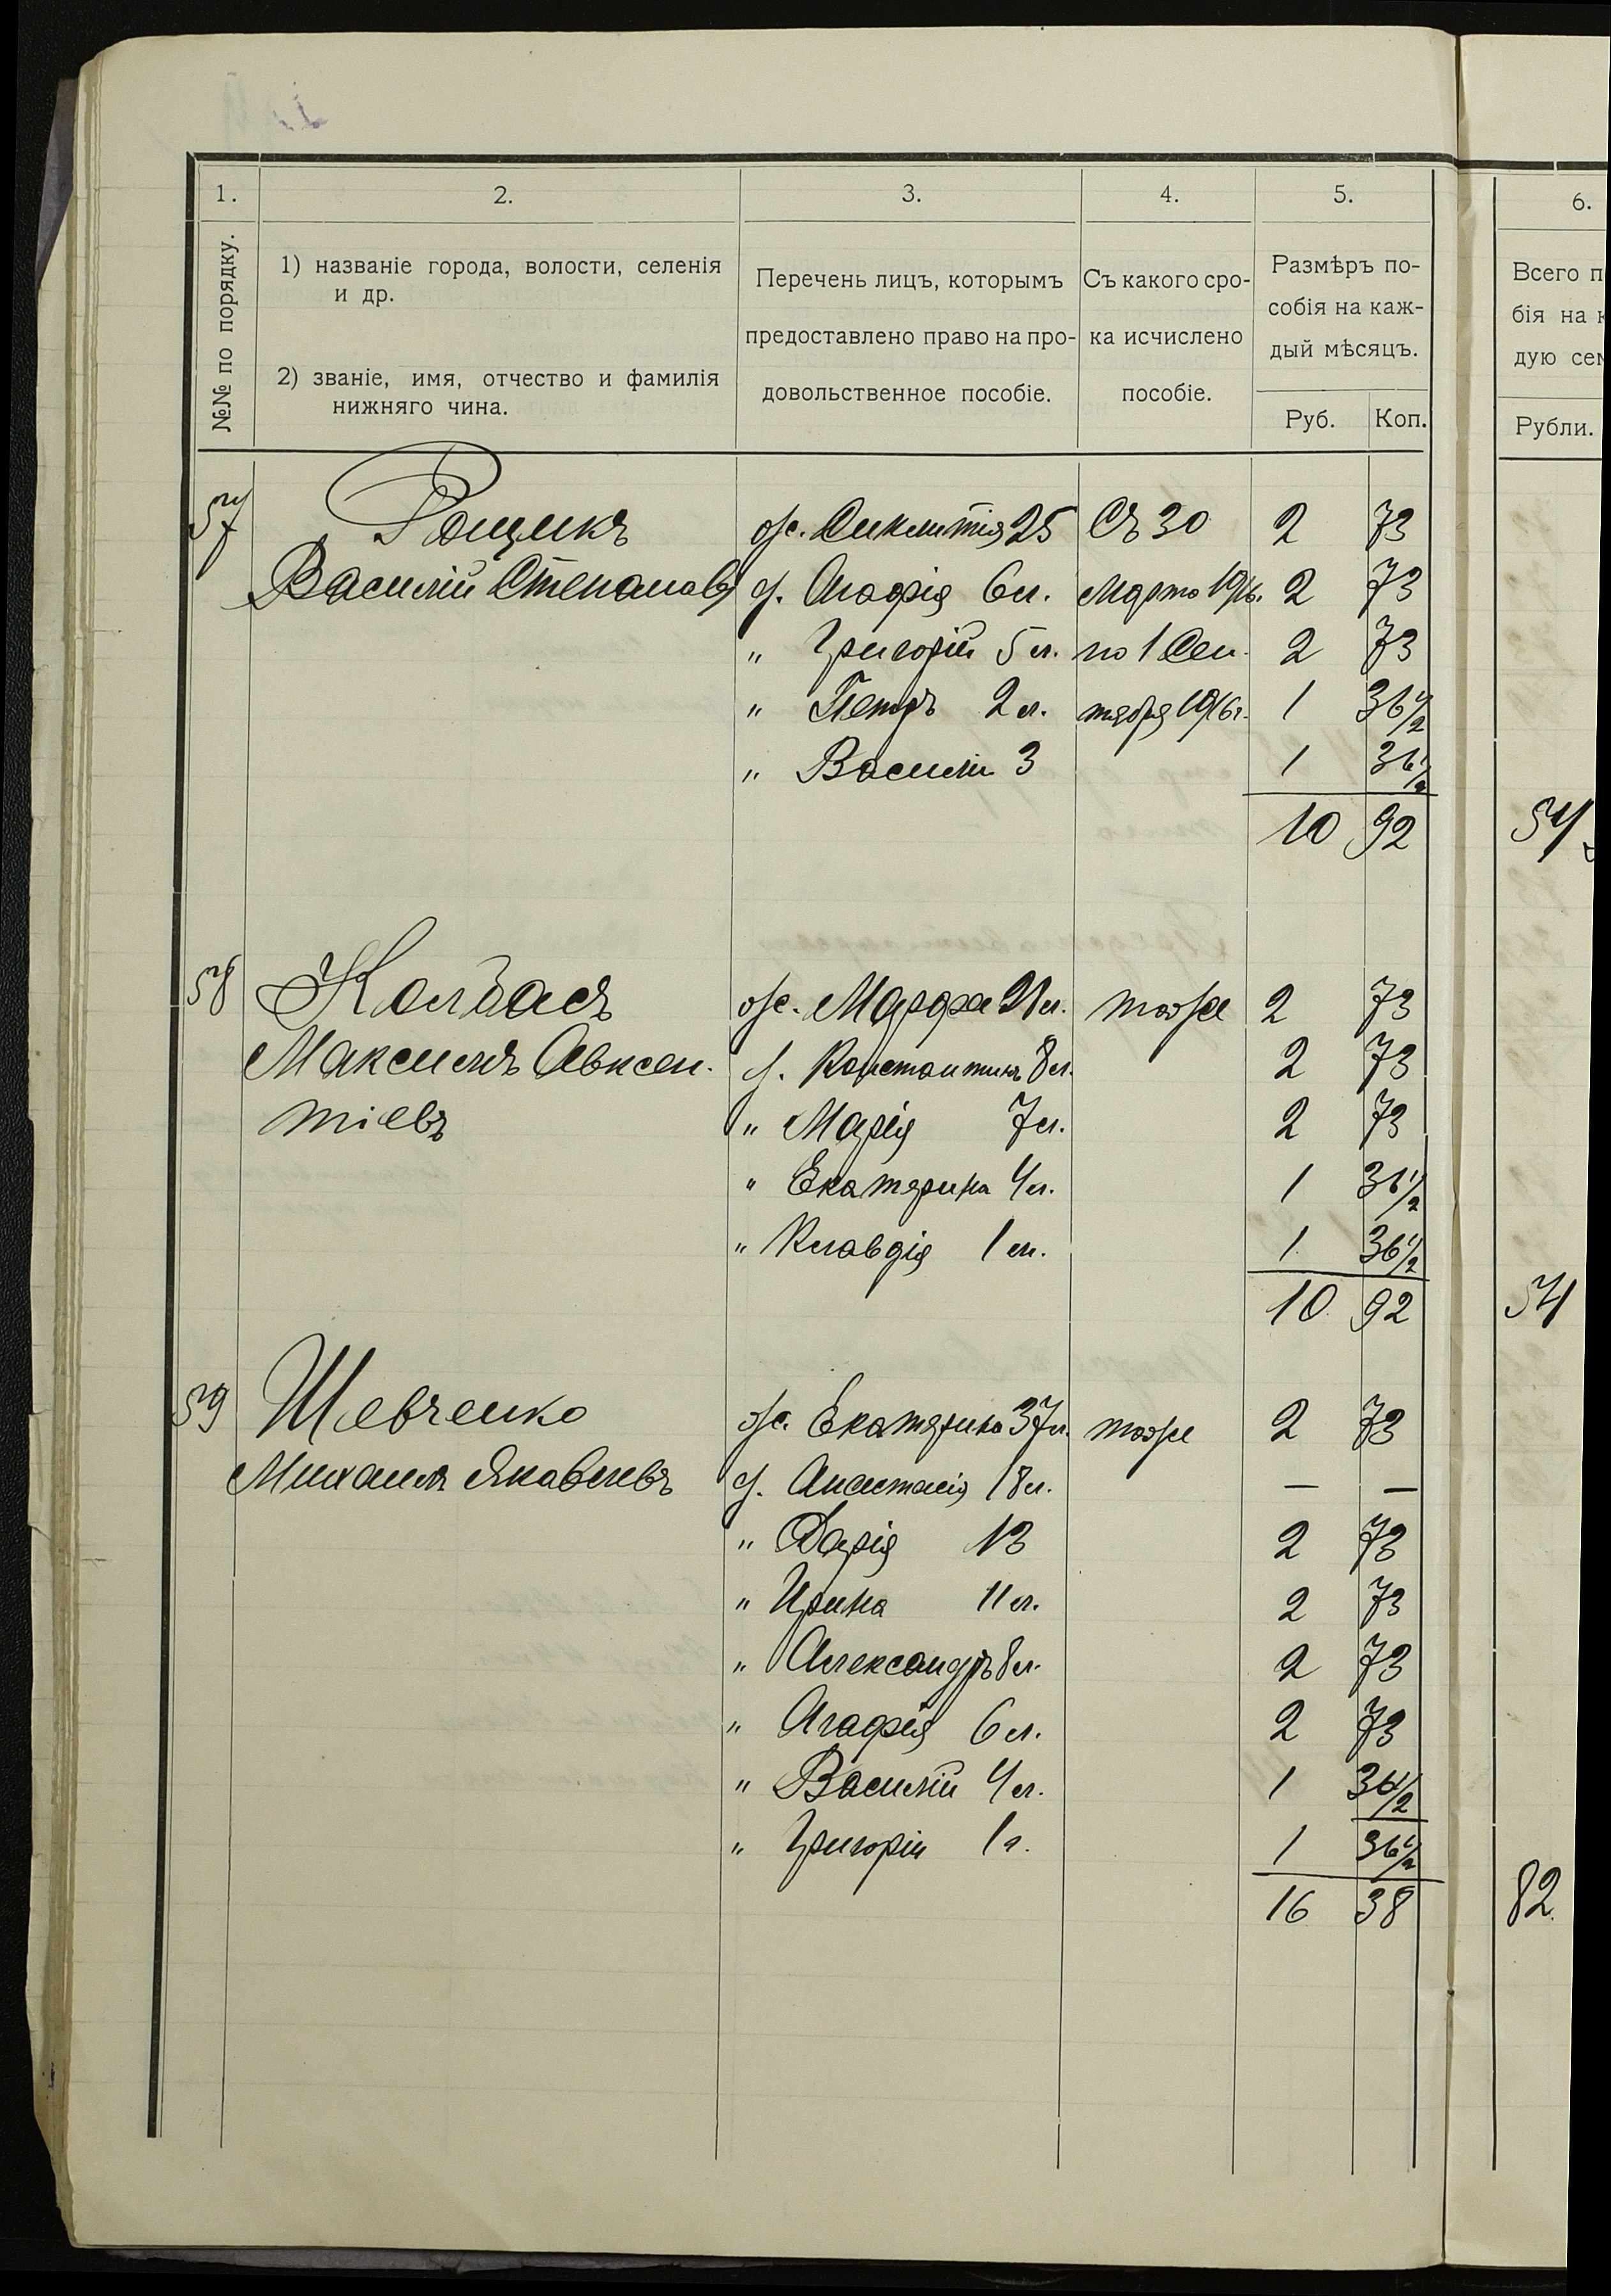 1. 2. 3. 4. 5. 6.
№№ по порядку.
1) названіе города, волости, селенія
и др.
2) званіе, имя, отчество и фамилія
нижняго чина.
Перечень лицъ, которымъ
предоставлено право на про-
довольственное пособіе.
Съ какого сро-
ка исчислено
пособіе.
Размѣръ по-
собія на каж-
дый мѣсяцъ.
Руб. Коп.
Всего п
бія на к
дую сем
Рубли.
57 Рощикъ ж. Синклитія 25 Съ 30 2 73
Василій Степановъ д. Агафія 6 л. Марта 1916. 2 73
" Григорій 5 л. по 1 Сен- 2 73
" Петръ 2 л. тября 1916 г. 1 36 1/2
" Василій 3 1 36 1/2
10 92 54
58 Колбасъ ж. Марфа л. тоже 2 73
Максимъ Авксен- д. Константинъ 8 л. 2 73
тіевъ " Марія 7 л. 2 73
" Екатярина 4 л. 1 36 1/2
" Клавдія 1 л. 1 36 1/2
10 92 54
59 Шевченко ж. Екатярина 37 л. тоже 2 73
Михаилъ Яковлевъ д. Анастасія 18 л. — —
" Дарія 13 2 73
" Ирина 11 л. 2 73
" Александръ 8 л. 2 73
" Агафія 6 л. 2 73
" Василій 4 л. 1 36 1/2
" Григорій 1 г. 1 36 1/2
16 38 82